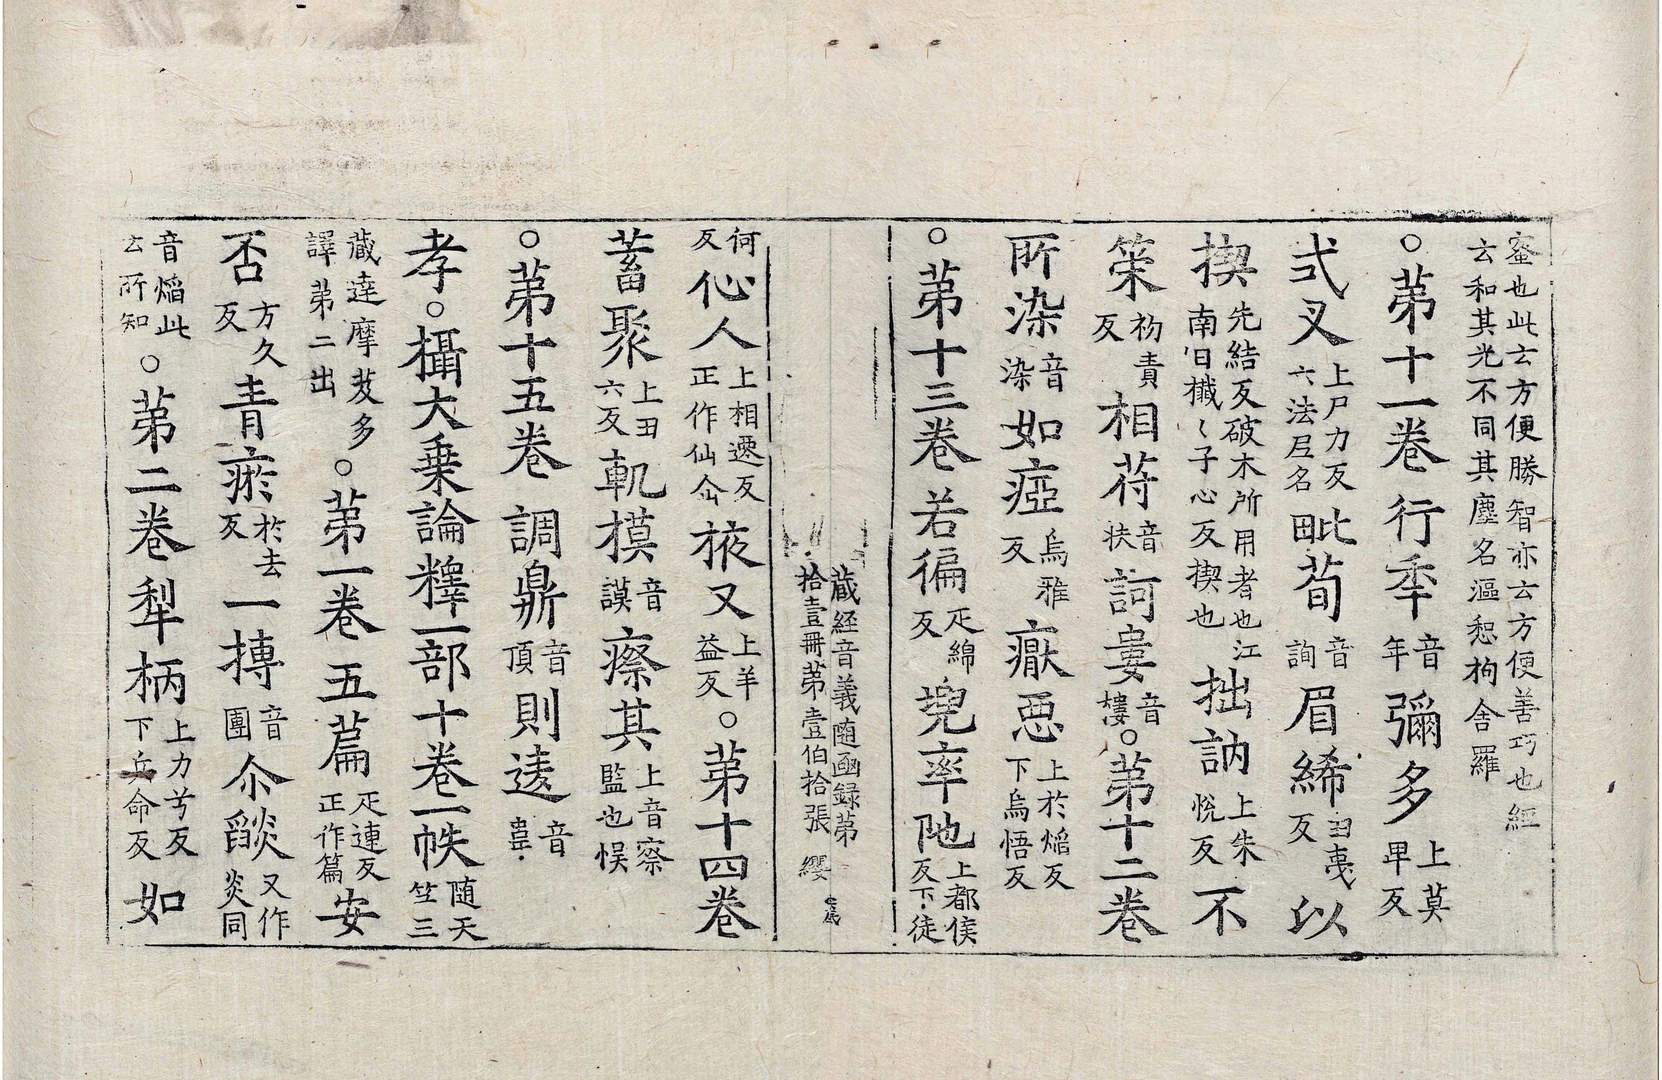 蜜也此云方便勝智亦云方便善巧也經云和其光不同其塵名漚惒拘舍羅
○第十一卷 行秊音年 彌多上莫畀反
式叉上尸力反六法尼名 毗荀音詢 眉絺丑夷反 以
楔先結反破木所用者也江南曰櫼〻子心反楔也 拙訥上朱悅反 不
筞初責反 相荷音扶 訶婁音樓 ○第十二卷
所染音染 如瘂烏雅反 厭惡上於焰反下烏悟反
○第十三卷 若徧疋綿反 兠率陁上都侯反下徒
何反 仙人上相遷反正作仙仚 掖又上羊益反 ○第十四卷
藏経音義随函録第拾壹冊第壹伯拾張 纓
蓄聚上丑六反 軌摸音謨 瘵其上音察監也悮
○第十五卷 調鼎音頂 則逵音
孝 ○攝大乗論釋一部十卷一帙随天竺三
藏達摩芨多譯第二出 ○第一卷 五篇疋連反正作篇 安
否方久反 青瘀於去反 一摶音團 尒𦦨又作炎同
音焔此云所知 ○第二卷 犁柄上力兮反下兵命反 如